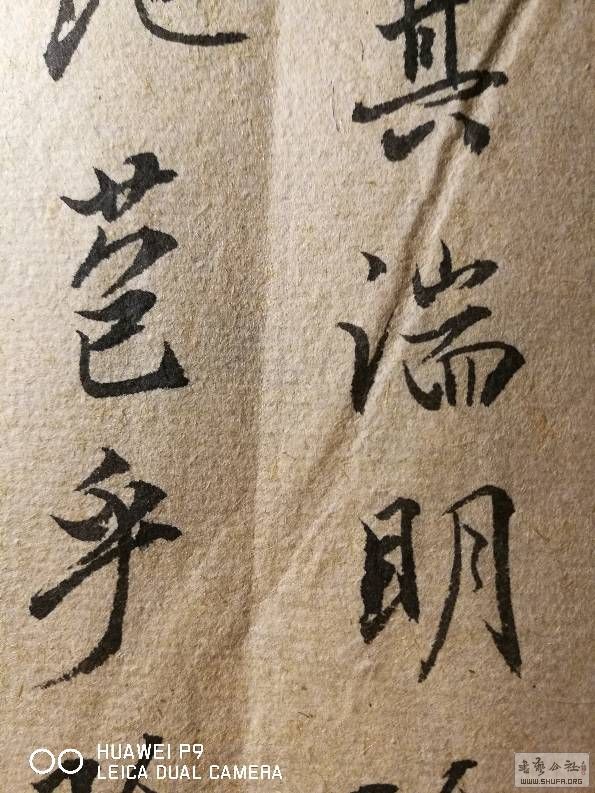 其端明
地苞乎
HUAWEI P9
LEICA DUAL CAMERA
WWW.SHUFA.ORG